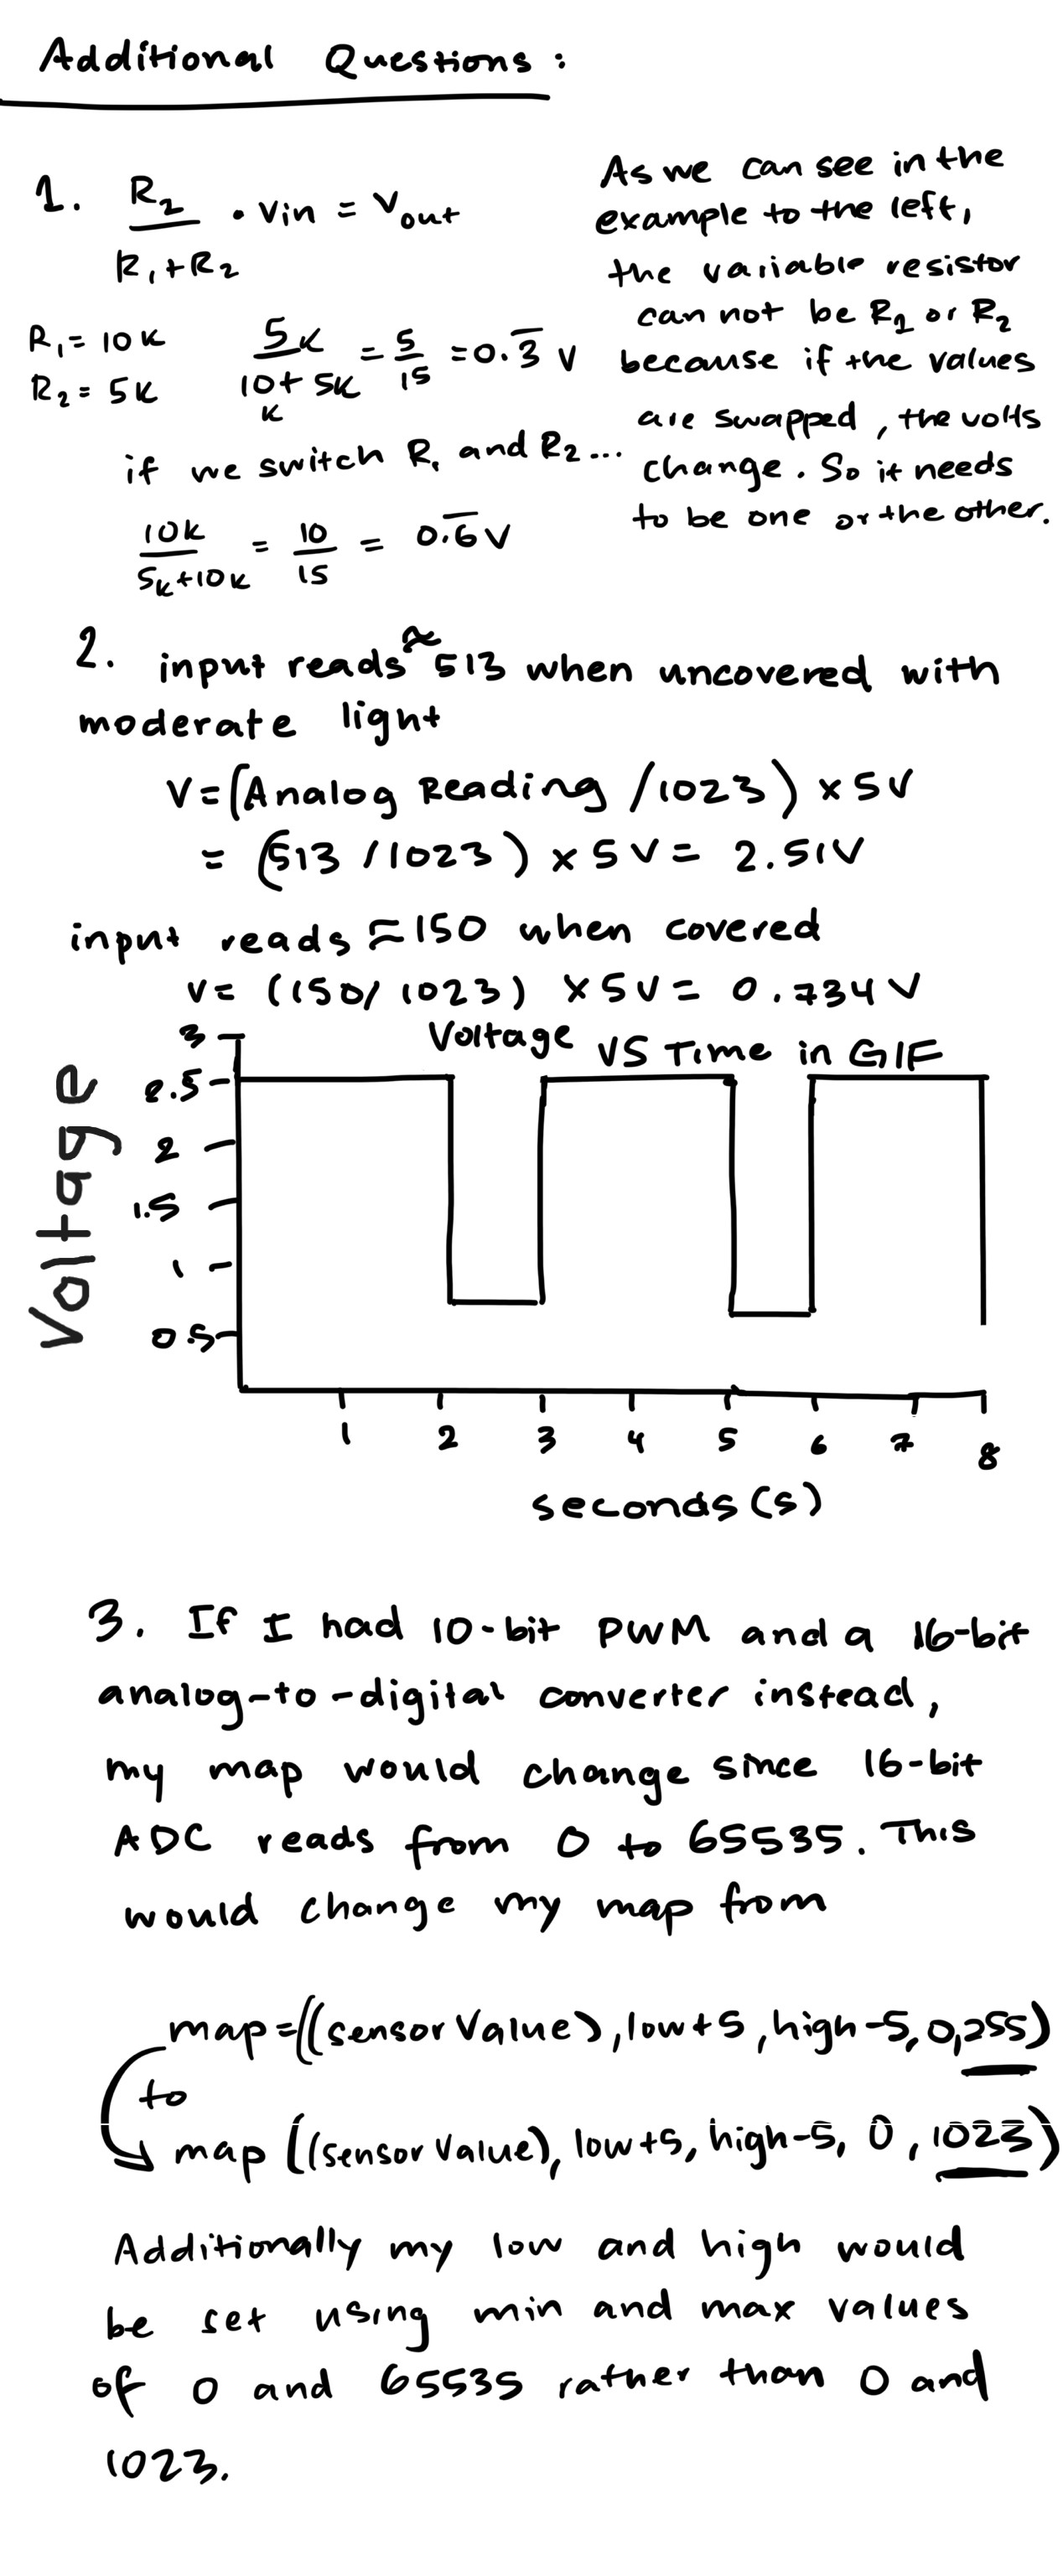 Additional Questions:
1. R2 / R1+R2 • Vin = Vout
R1 = 10K
R2 = 5K
5K / 10K+5K = 5/15 = 0.3̅ V
if we switch R1 and R2...
10K / 5K+10K = 10/15 = 0.6̅ V
As we can see in the
example to the left,
the variable resistor
can not be R1 or R2
because if the values
are swapped, the volts
change. So it needs
to be one or the other.
2. input reads ≈513 when uncovered with
moderate light
V=(Analog Reading /1023) x 5V
= (513 /1023) x 5V = 2.51V
input reads ≈150 when covered
V= (150/1023) x5V= 0.734V
Voltage VS Time in GIF
Voltage
3
2.5
2
1.5
1
0.5
1 2 3 4 5 6 7 8
seconds (s)
3. If I had 10-bit PWM and a 16-bit
analog-to-digital converter instead,
my map would change since 16-bit
ADC reads from 0 to 65535. This
would change my map from
map=((sensorValue), low+5, high-5, 0, 255)
to
map ((sensorValue), low+5, high-5, 0, 1023)
Additionally my low and high would
be set using min and max values
of 0 and 65535 rather than 0 and
1023.